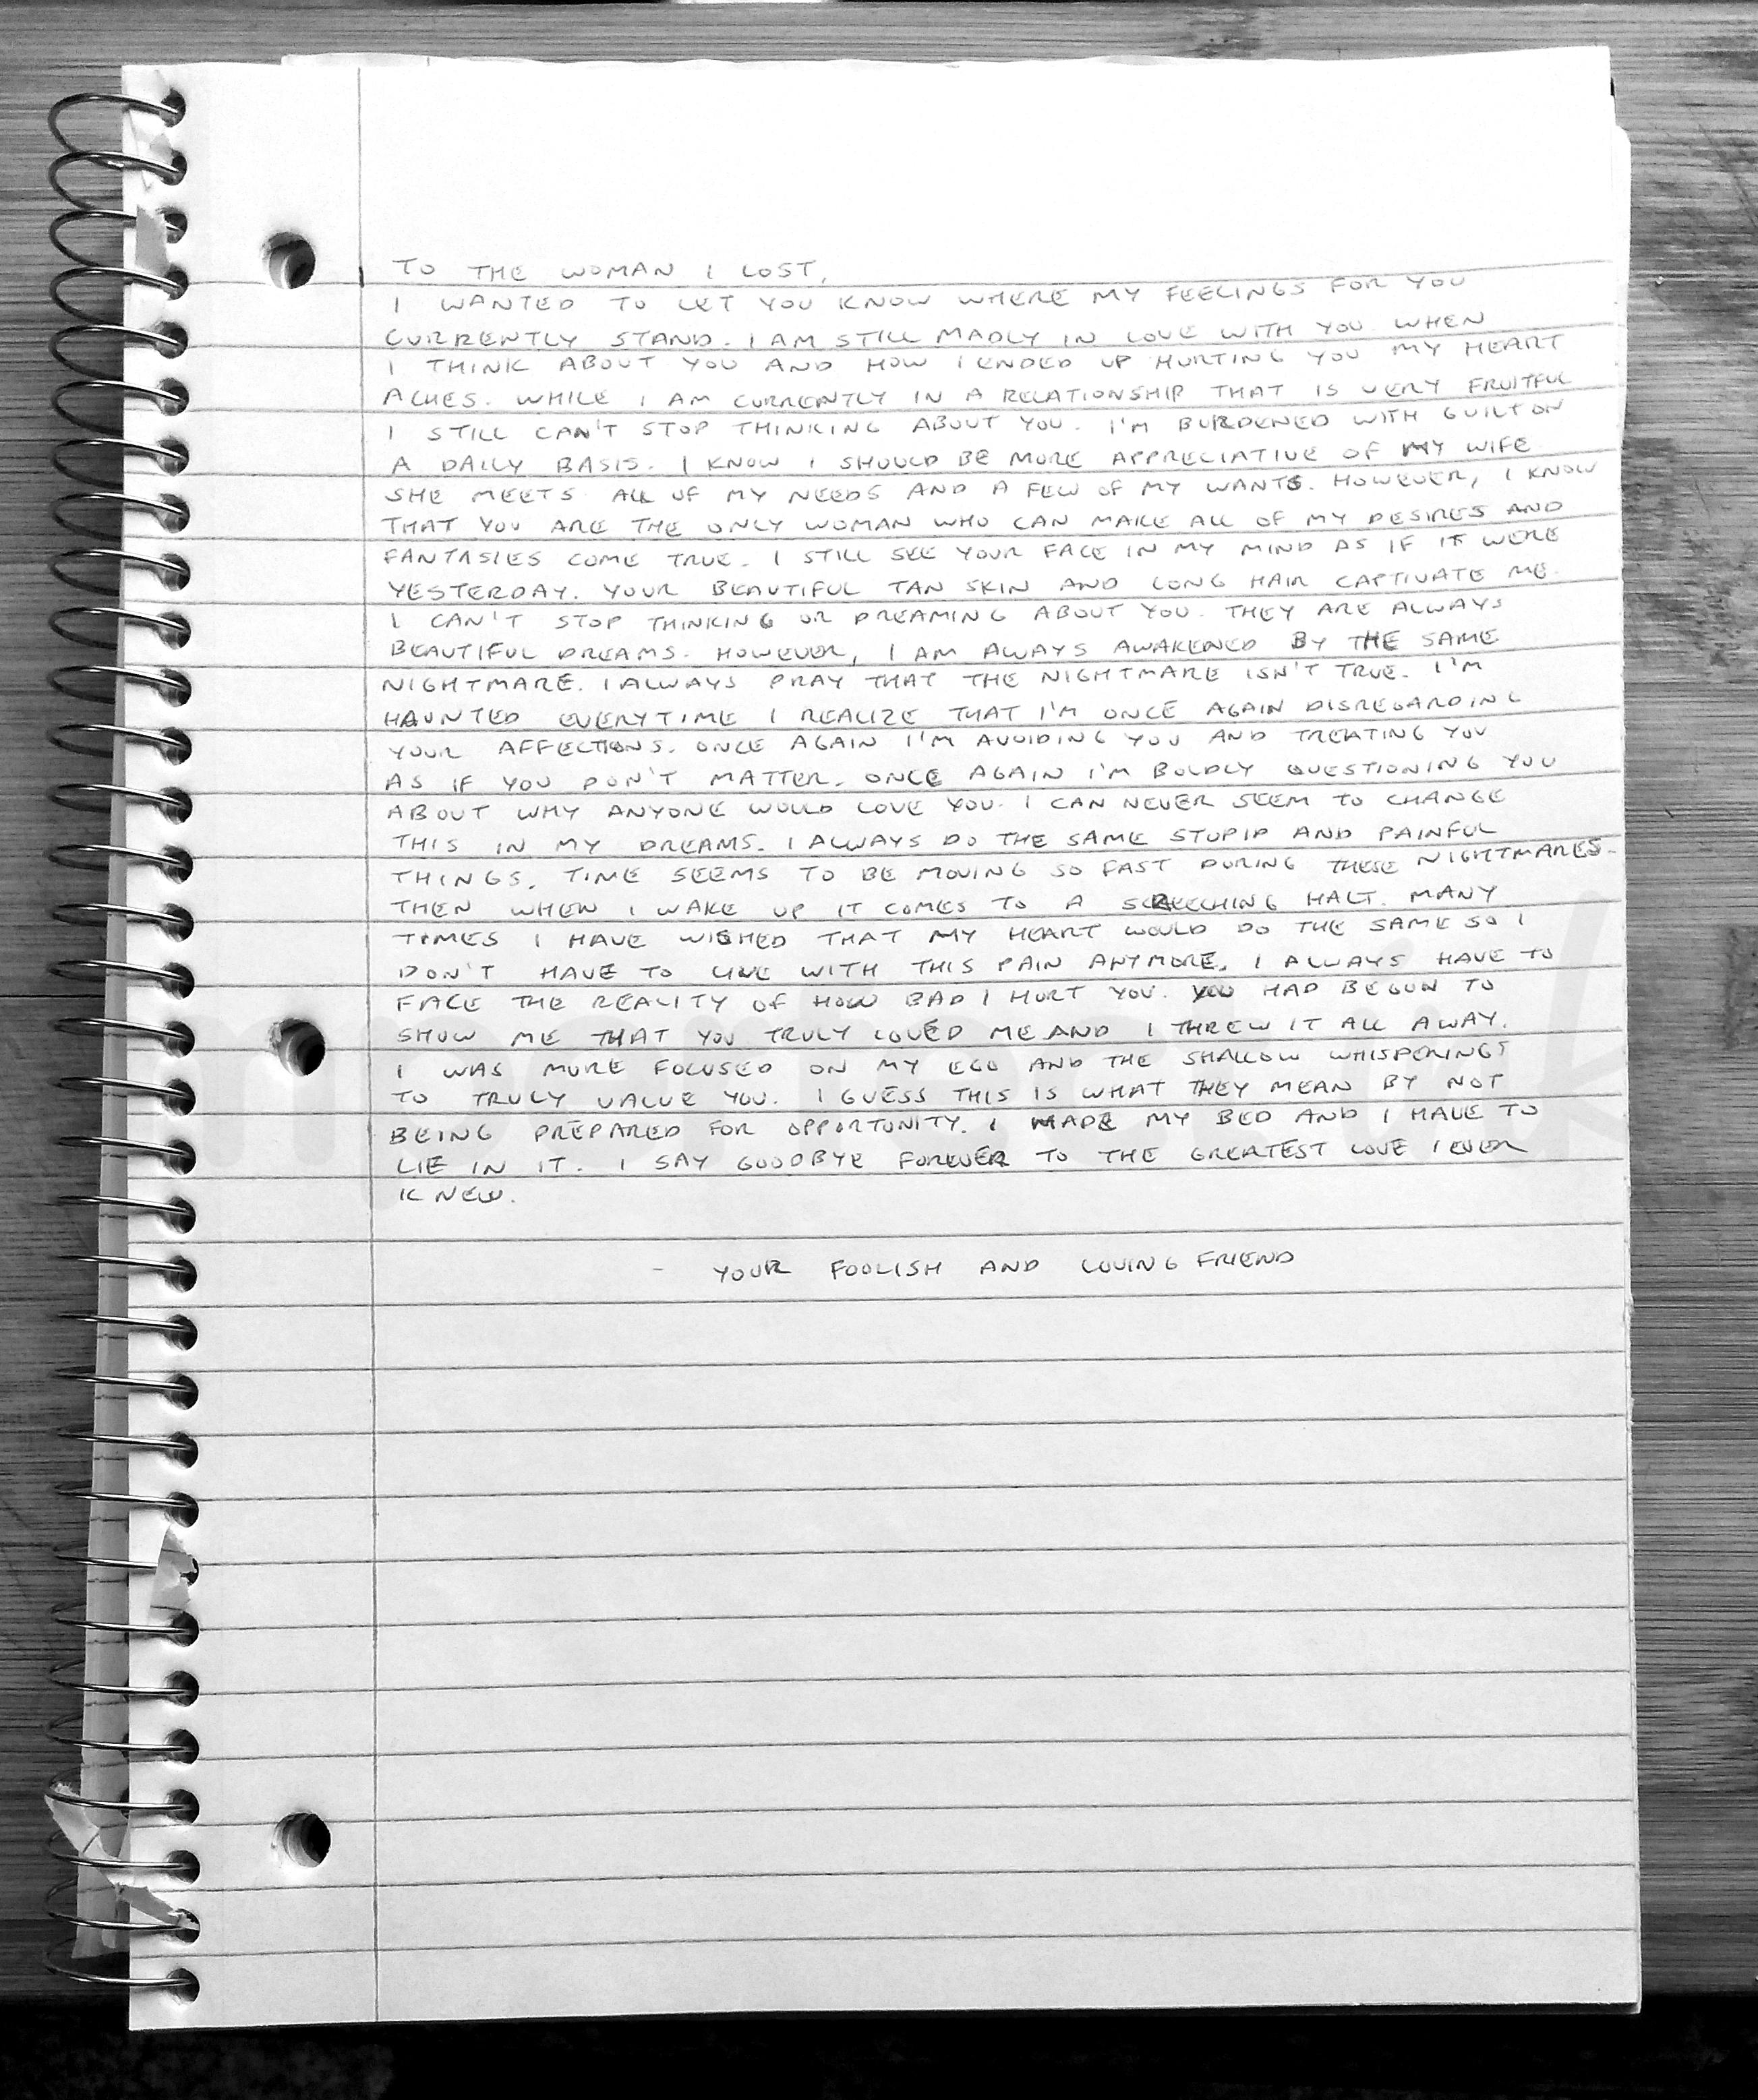 TO THE WOMAN I LOST,
I WANTED TO LET YOU KNOW WHERE MY FEELINGS FOR YOU
CURRENTLY STAND. I AM STILL MADLY IN LOVE WITH YOU. WHEN
I THINK ABOUT YOU AND HOW I ENDED UP HURTING YOU MY HEART
ACHES. WHILE I AM CURRENTLY IN A RELATIONSHIP THAT IS VERY FRUITFUL
I STILL CAN'T STOP THINKING ABOUT YOU. I'M BURDENED WITH GUILT ON
A DAILY BASIS. I KNOW I SHOULD BE MORE APPRECIATIVE OF MY WIFE.
SHE MEETS ALL OF MY NEEDS AND A FEW OF MY WANTS. HOWEVER, I KNOW
THAT YOU ARE THE ONLY WOMAN WHO CAN MAKE ALL OF MY DESIRES AND
FANTASIES COME TRUE. I STILL SEE YOUR FACE IN MY MIND AS IF IT WERE
YESTERDAY. YOUR BEAUTIFUL TAN SKIN AND LONG HAIR CAPTIVATE ME.
I CAN'T STOP THINKING OR DREAMING ABOUT YOU. THEY ARE ALWAYS
BEAUTIFUL DREAMS. HOWEVER, I AM ALWAYS AWAKENED BY THE SAME
NIGHTMARE. I ALWAYS PRAY THAT THE NIGHTMARE ISN'T TRUE. I'M
HAUNTED EVERYTIME I REALIZE THAT I'M ONCE AGAIN DISREGARDING
YOUR AFFECTIONS. ONCE AGAIN I'M AVOIDING YOU AND TREATING YOU
AS IF YOU DON'T MATTER. ONCE AGAIN I'M BOLDLY QUESTIONING YOU
ABOUT WHY ANYONE WOULD LOVE YOU. I CAN NEVER SEEM TO CHANGE
THIS IN MY DREAMS. I ALWAYS DO THE SAME STUPID AND PAINFUL
THINGS. TIME SEEMS TO BE MOVING SO FAST DURING THESE NIGHTMARES.
THEN WHEN I WAKE UP IT COMES TO A SCREECHING HALT. MANY
TIMES I HAVE WISHED THAT MY HEART WOULD DO THE SAME SO I
DON'T HAVE TO LIVE WITH THIS PAIN ANYMORE. I ALWAYS HAVE TO
FACE THE REALITY OF HOW BAD I HURT YOU. YOU HAD BEGUN TO
SHOW ME THAT YOU TRULY LOVED ME AND I THREW IT ALL AWAY.
I WAS MORE FOCUSED ON MY EGO AND THE SHALLOW WHISPERINGS
TO TRULY VALUE YOU. I GUESS THIS IS WHAT THEY MEAN BY NOT
BEING PREPARED FOR OPPORTUNITY. I MADE MY BED AND I HAVE TO
LIE IN IT. I SAY GOODBYE FOREVER TO THE GREATEST LOVE I EVER
KNEW.
- YOUR FOOLISH AND LOVING FRIEND